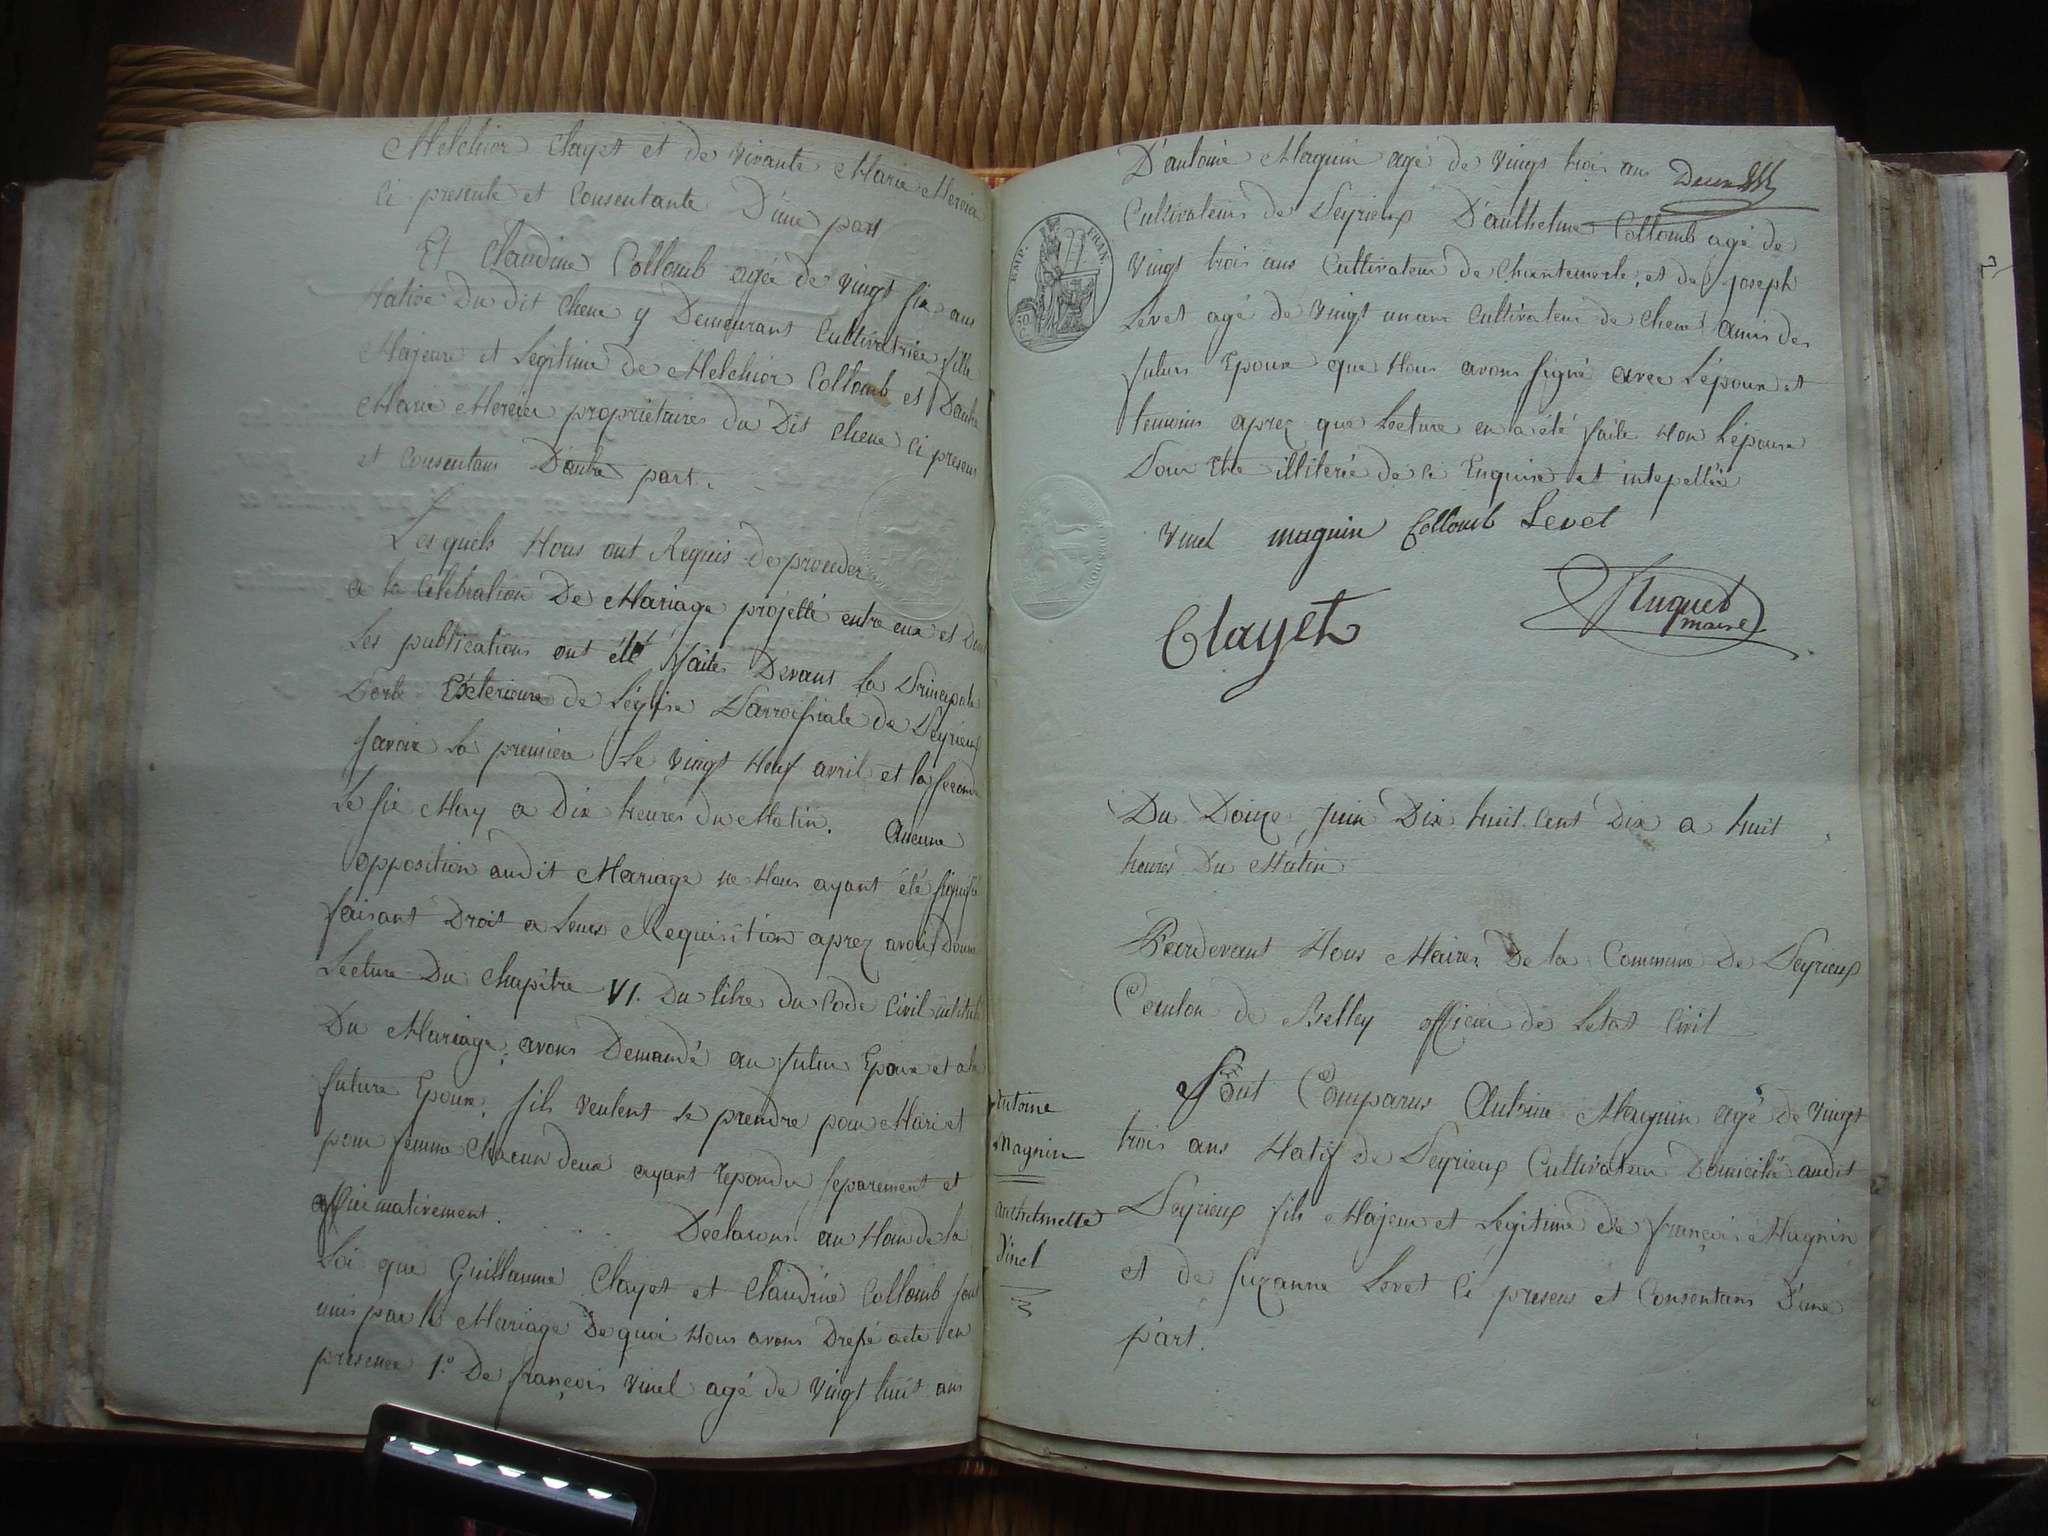 Melchior Clayet et de vivante Marie Mercier
Ci presente et Consentante D'une part
Et Claudine Collomb agée de vingt six ans
Native Du dit Chene y Demeurant Cultivatrice fille
Majeure et Legitime de Melchior Collomb et Dautre
Marie Mercier propriétaires du Dit Chene Ci presens
et Consentans D'autre part.
Les quels Nous ont Requis de proceder
a la Célébration De Mariage projetté entre eux et Dont
Les publications ont été faites Devant La Principale
Porte Extérieure de Léglise Parroissiale de Peyrieux
savoir La premiere Le vingt Neuf avril et la seconde
Le six May a Dix heures du Matin. Aucune
opposition audit Mariage ne Nous ayant été signifié
faisant Droit a Leurs Requisition aprez avoir Donné
Lecture Du Chapitre VI. Du titre du Code Civil intitulé
Du Mariage, avons Demandé au futur Epoux et a la
future Epouse, sils veulent se prendre pour Mari et
pour femme Chacun deux ayant repondu separement et
affirmativement. Declarons au Nom de la
Loi que Guillaume Clayet et Claudine Collomb sont
unis par le Mariage De quoi Nous avons Dressé acte en
presence 1.º De françois vinel agé de vingt huit ans
D'antoine Magnin agé de vingt trois ans
Cultivateurs de Peyrieux D'anthelme Collomb agé de
vingt trois ans Cultivateur de Chantemerle, et de joseph
Levet agé de vingt un ans Cultivateur de Chene amis des
futurs Epoux que Nous avons signé avec L'époux et
temoins aprez que Lecture en a été faite Non L'épouse
Pour Etre illiterée de ce Enquise et intepellée
EMP. FRAN.
vinel magnin Collomb Levet
Clayet
Huguet
maire
Du Douze Juin Dix huit Cent Dix a huit
heures Du Matin
Pardevant Nous Maire De la Commune De Peyrieux
Canton de Belley officier de Letat Civil
Sont Comparus Antoine Magnin agé de vingt
trois ans Natif de Peyrieux Cultivateur Domicilié audit
Peyrieux fils Majeur et Legitime de françois Magnin
et de Suzanne Levet Ci presens et Consentans D'une
part.
Antoine
Magnin
anthelmette
Vinel